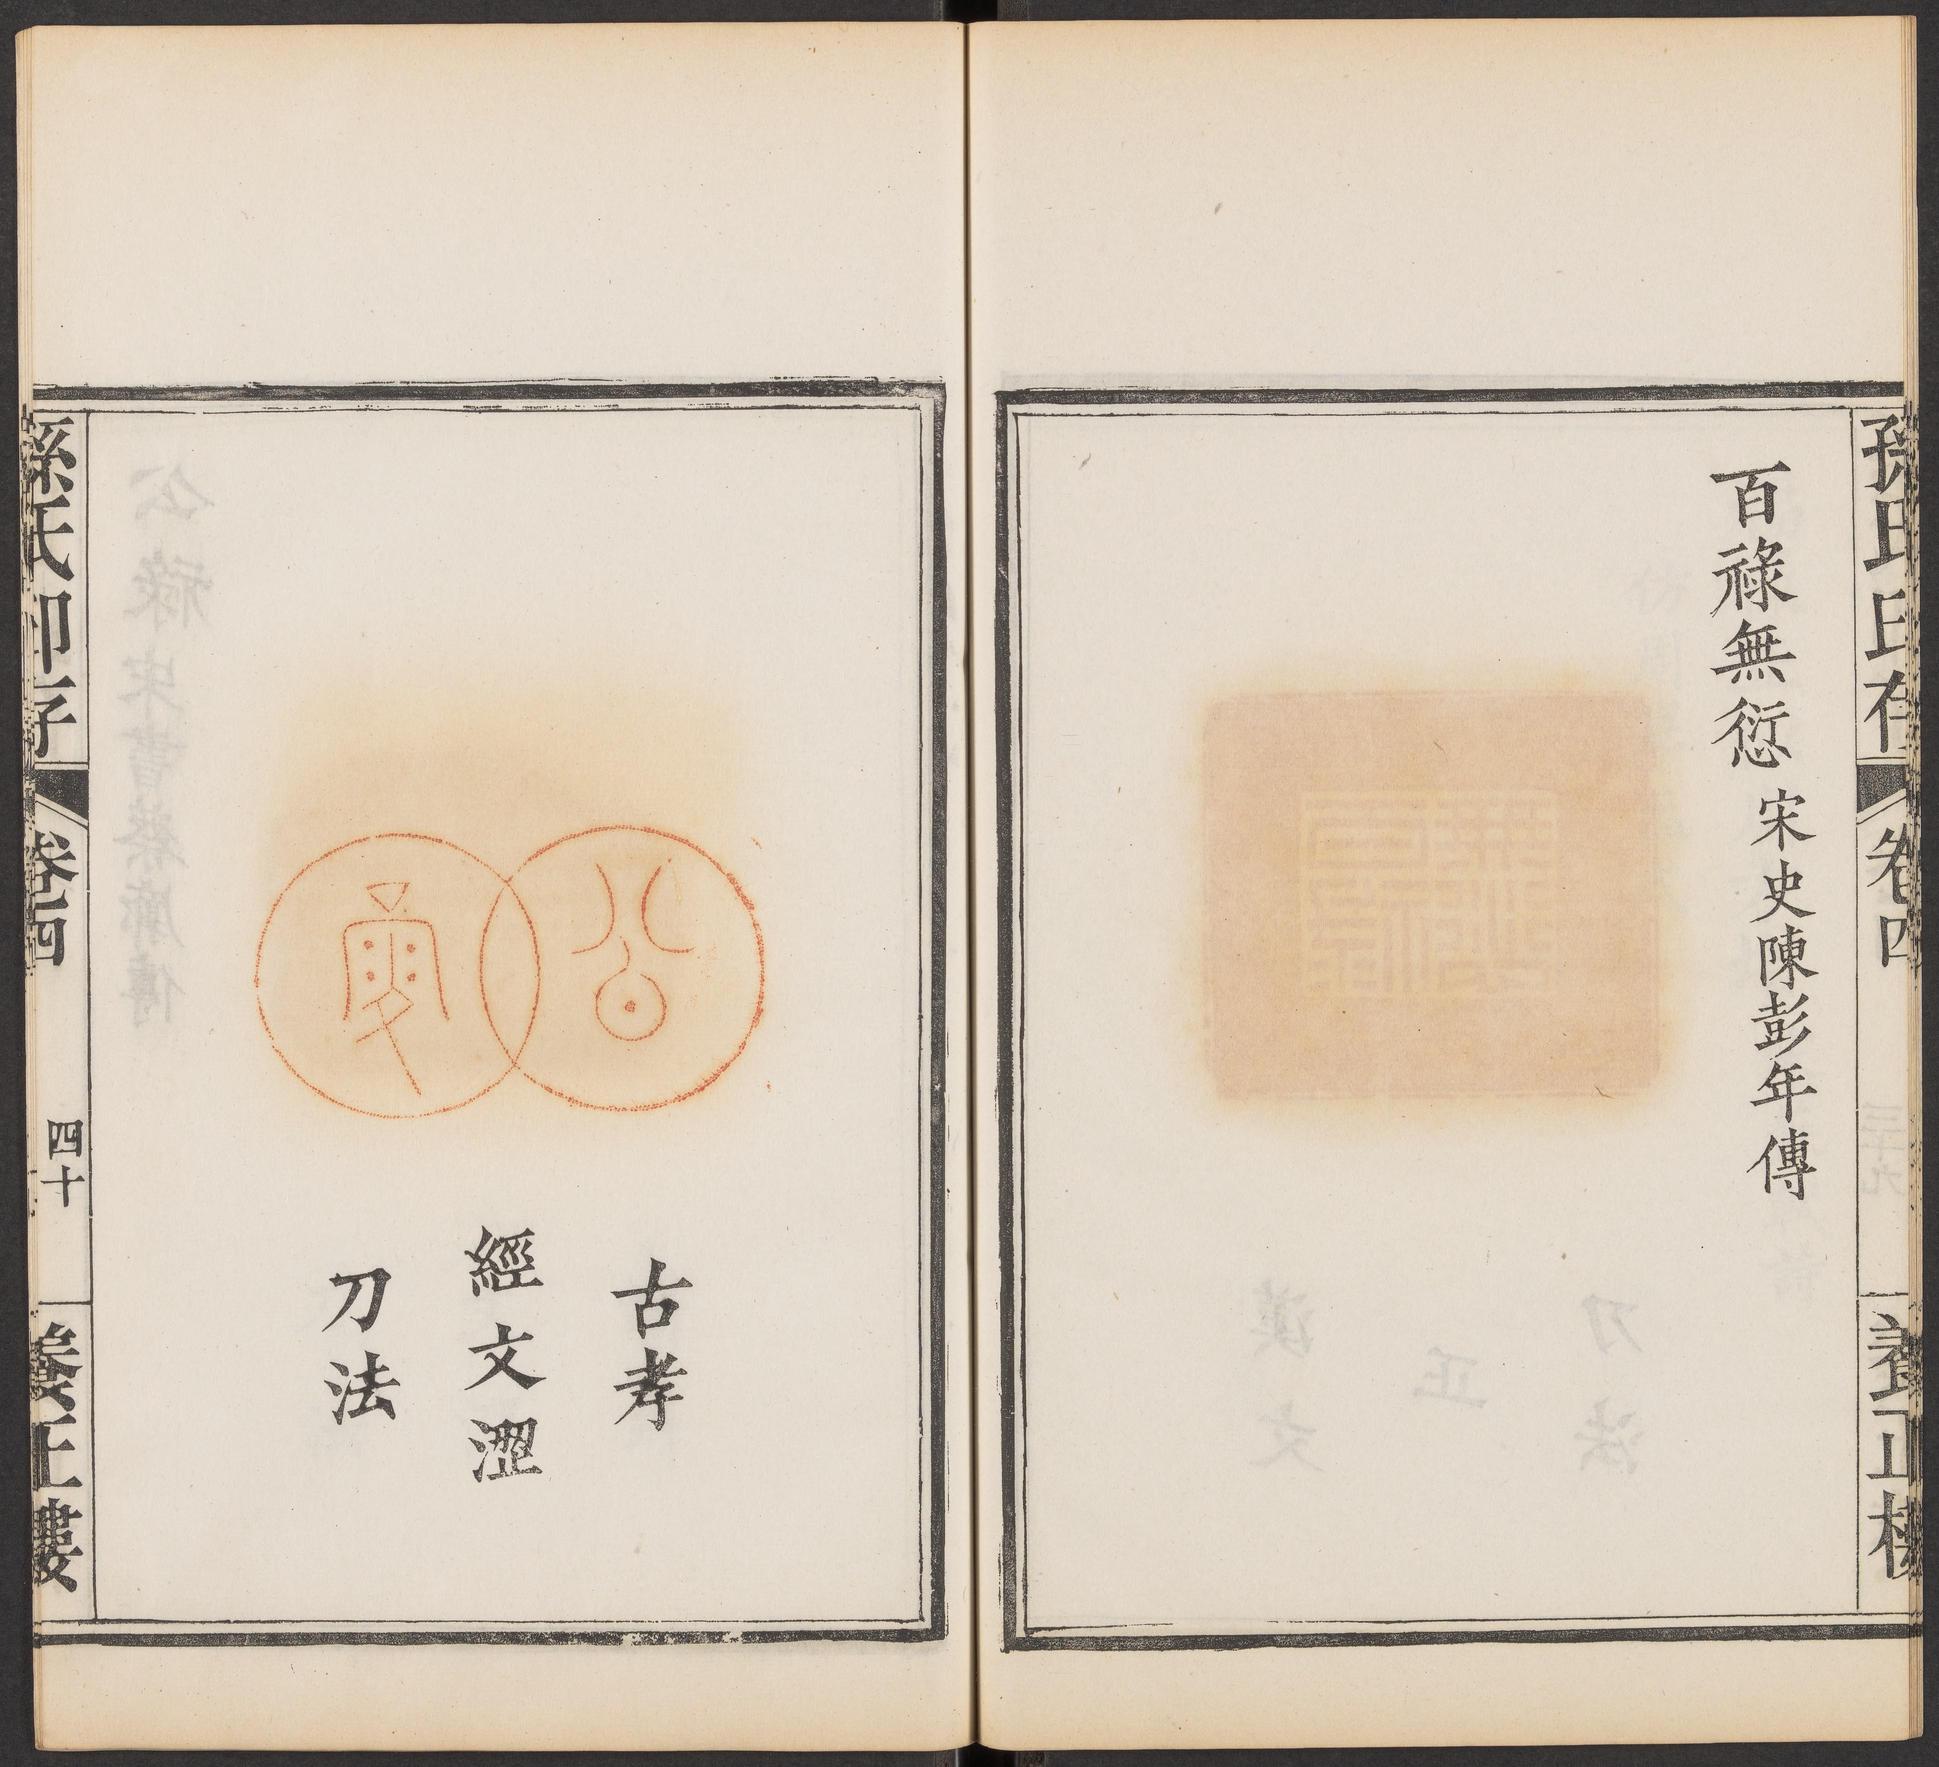 百祿無愆 宋史陳彭年傳
孫氏印存 卷四 養正樓
古孝
經文澀
刀法
孫氏印存 卷四 四十 養正樓